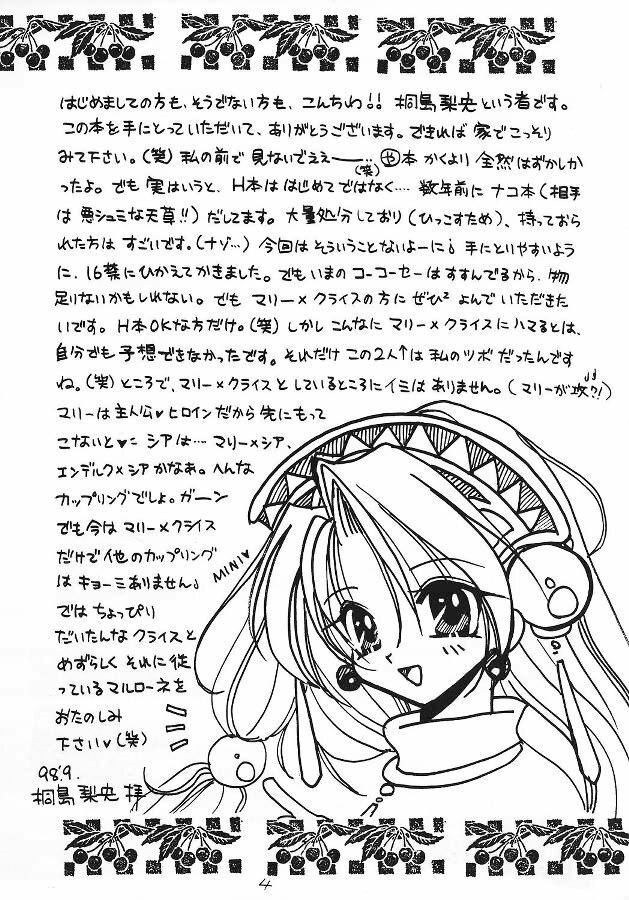 はじめましての方も、そうでない方も、こんちわ!! 桐島梨央という者です。
この本を手にとっていただいて、ありがとうございます。できれば 家でこっそり
みて下さい。(笑) 私の前で 見ないでえぇー…(笑) や本 かくより 全然 はずかしか
ったよ。でも 実はいうと、H本は はじめてではなく…. 数年前に ナコ本 (相手
は 悪シュミな天草!!) だしてます。大量処分しており (ひっこすため)、持っておら
れた方は すごいです。(ナゾ…) 今回は そういうことないよーに! 手にとりやすいよう
に、16禁に ひかえてかきました。でも いまの コーコーセーは すすんでるから、物
足りないかもしれない。でも マリー×クライスの方に ぜひ² よんで いただきた
いです。H本OKな方だけ。(笑) しかし こんなに マリー×クライスに ハマるとは、
自分でも 予想できなかったです。それだけ この2人↑は 私のツボ だったんです
ね。(笑) ところで、マリー×クライスと しているところに イミは ありません。(マリーが攻?!)
マリーは 主人公♥ ヒロインだから 先にもって
こないと♥ シアは… マリー×シア、
エンデルク×シア かなあ。へんな
カップリングでしょ。ガーン
でも今は マリー×クライス
だけで 他のカップリング
は キョーミありません。
では ちょっぴり
だいたんな クライスと
めずらしく それに 従
っている マルローネを
おたのしみ
下さい♥(笑)
MINI♥
98'9.
桐島 梨央 拝
4